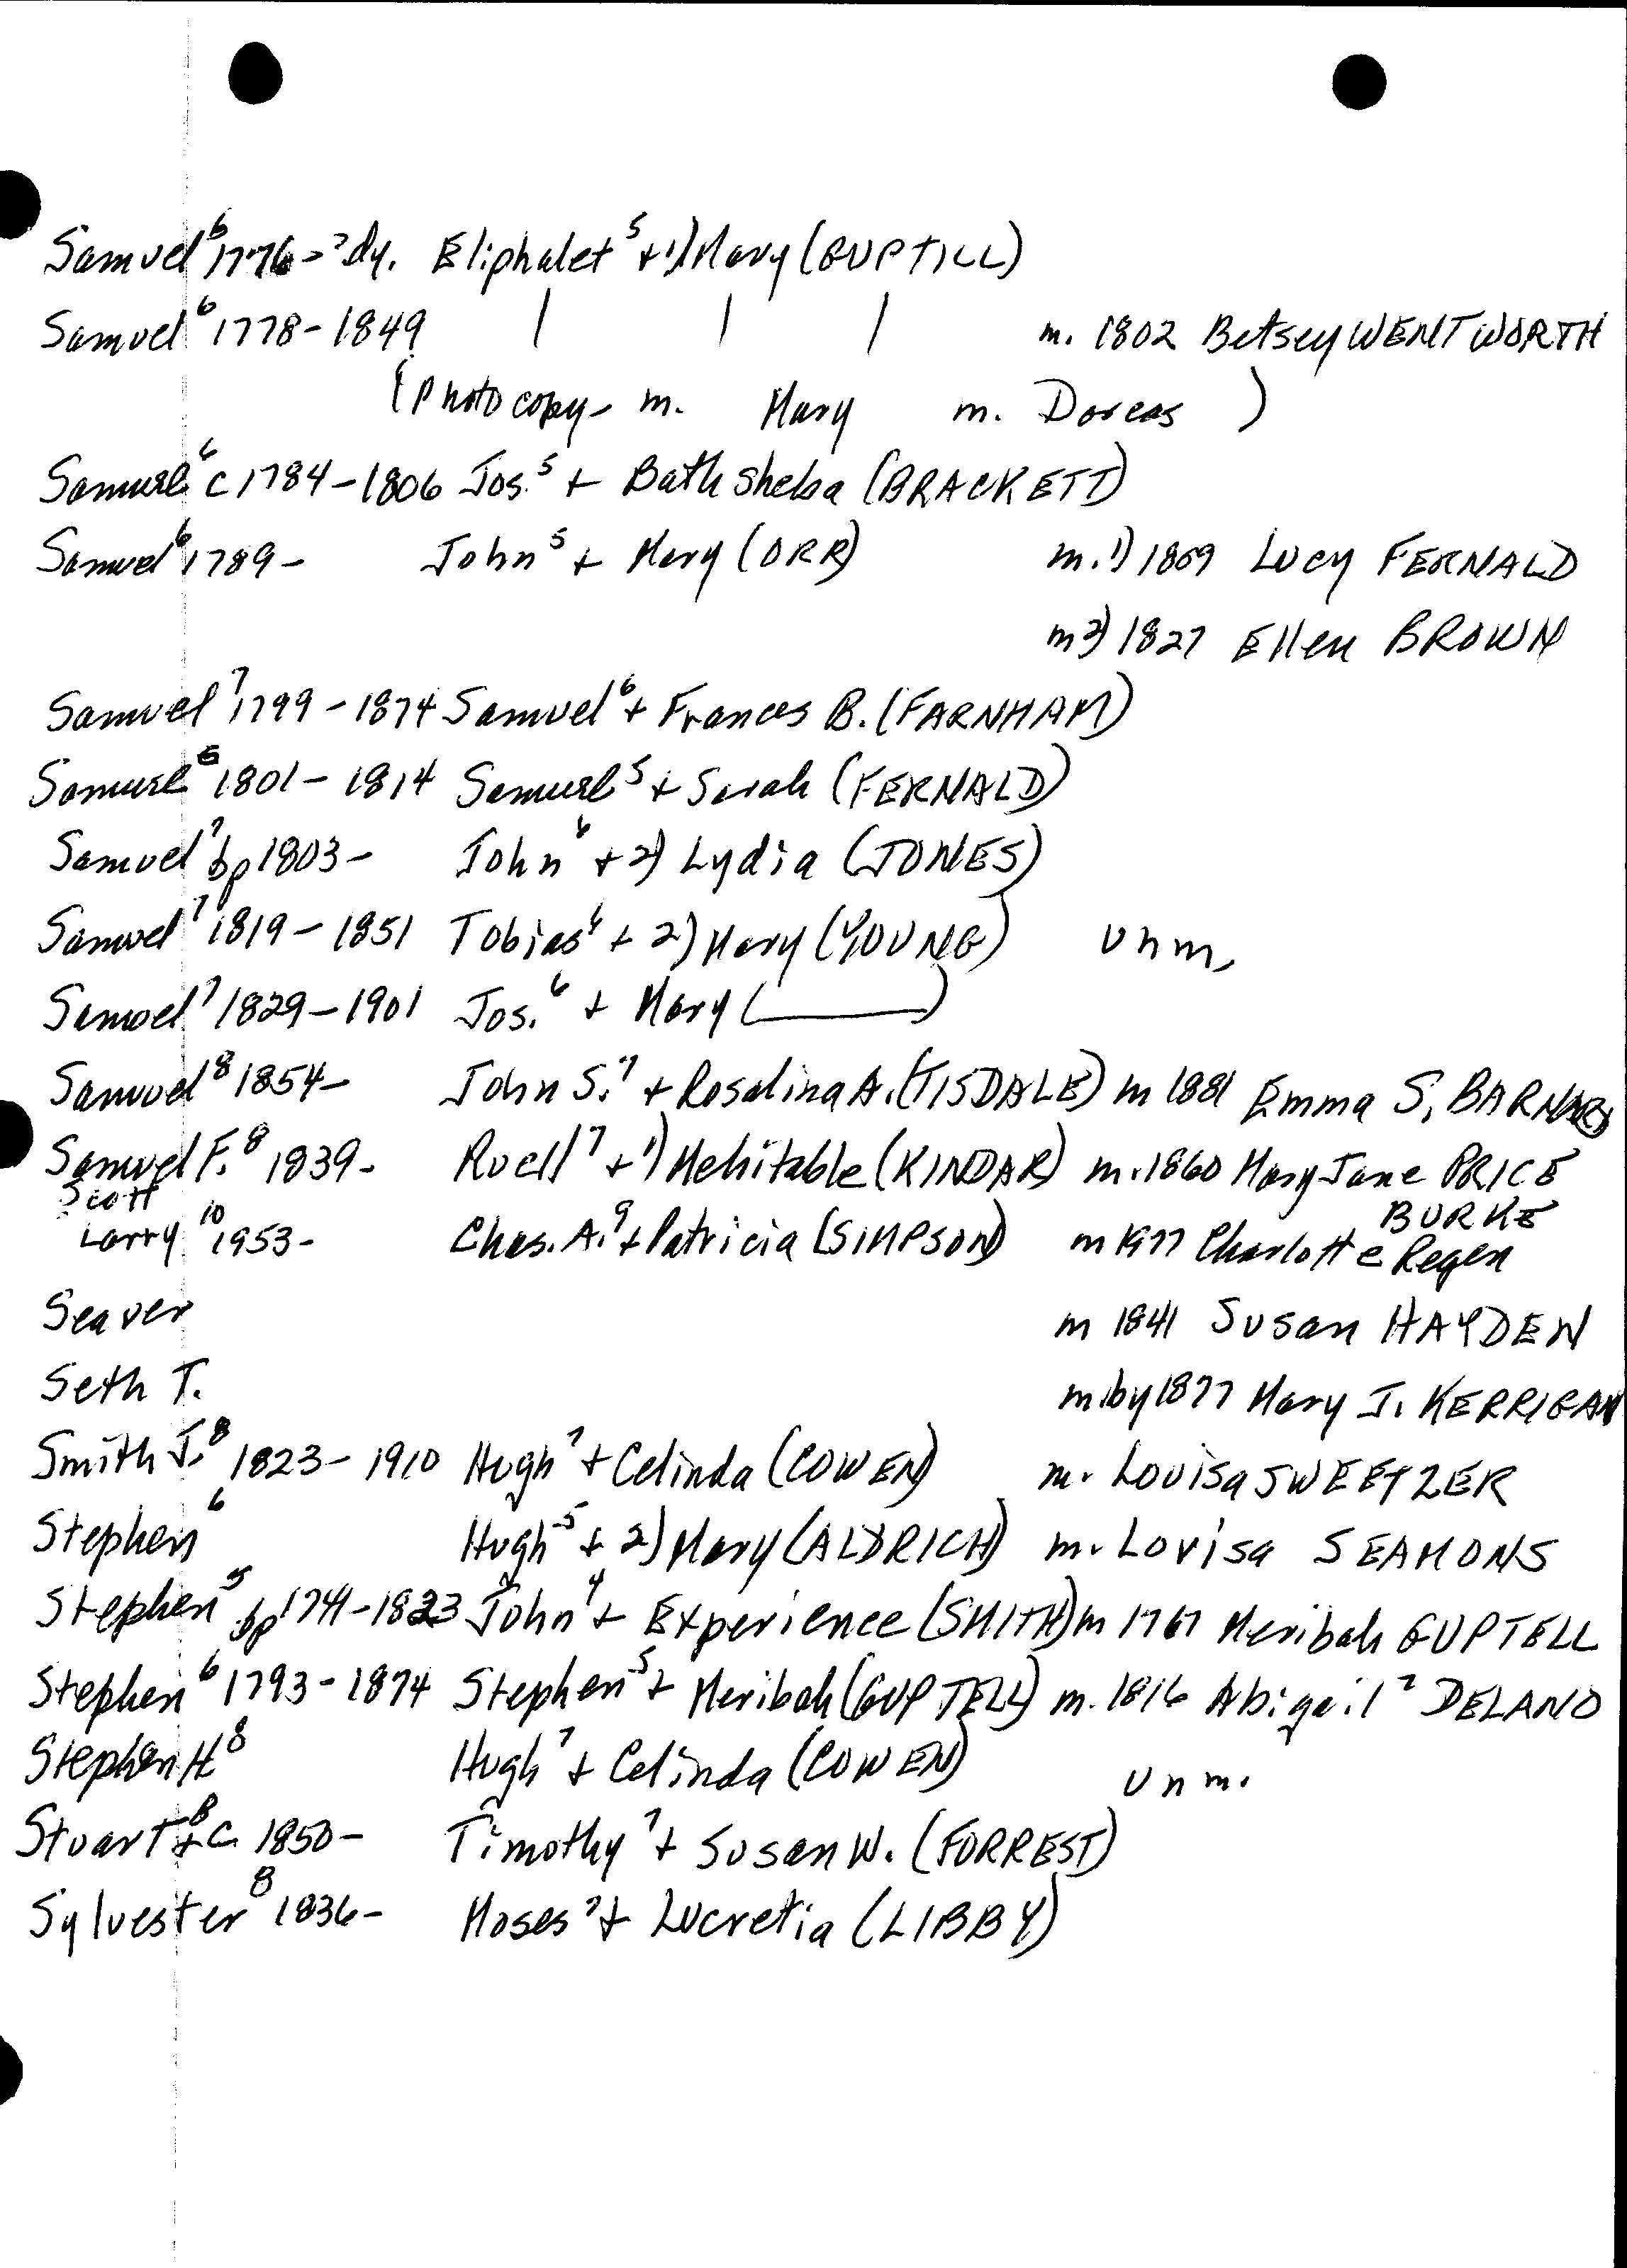 Samuel⁶ 1776-? dy. Eliphalet⁵ + 1) Mary (GUPTILL)
Samuel⁶ 1778-1849 | | | m. 1802 Betsey WENTWORTH
(Photocopy - m. Mary m. Dorcas )
Samuel⁶ c 1784-1806 Jos.⁵ + Bathsheba (BRACKETT)
Samuel⁶ 1789- John⁵ + Mary (ORR) m. 1) 1809 Lucy FERNALD
m 2) 1827 Ellen BROWN
Samuel⁷ 1799-1874 Samuel⁶ + Frances B. (FARNHAM)
Samuel⁶ 1801-1814 Samuel⁵ + Sarah (FERNALD)
Samuel⁷ bp 1803- John⁶ + 2) Lydia (JONES)
Samuel⁷ 1819-1851 Tobias⁶ + 2) Mary (YOUNG) unm.
Samuel⁷ 1829-1901 Jos.⁶ + Mary (______)
Samuel⁸ 1854- John S.⁷ + Rosalina A. (TISDALE) m 1881 Emma S.
Samuel F.⁸ 1839- Ruell⁷ + 1) Mehitable (KINDAR) m. 1860 Mary Jane PRICE
Scott BURKE
Larry¹⁰ 1953- Chas. A.⁹ + Patricia (SIMPSON) m 1977 Charlotte Regen
Seaver m 1841 Susan HAYDEN
Seth T. m. by 1877 Mary J. KERRIGAN
Smith J.⁸ 1823-1910 Hugh⁷ + Celinda (COWEN) m. Louisa SWEETZER
Stephen⁶ Hugh⁵ + 2) Mary (ALDRICH) m. Lovisa SEAMONS
Stephen⁵ bp 1741-1823 John⁴ + Experience (SMITH) m 1767 Meribah GUPTELL
Stephen⁶ 1793-1874 Stephen⁵ + Meribah (GUPTELL) m. 1816 Abigail⁷ DELANO
Stephen H.⁸ Hugh⁷ + Celinda (COWEN) unm.
Stuart⁸ + c. 1850- Timothy⁷ + Susan W. (FORREST)
Sylvester⁸ 1836- Moses⁷ + Lucretia (LIBBY)